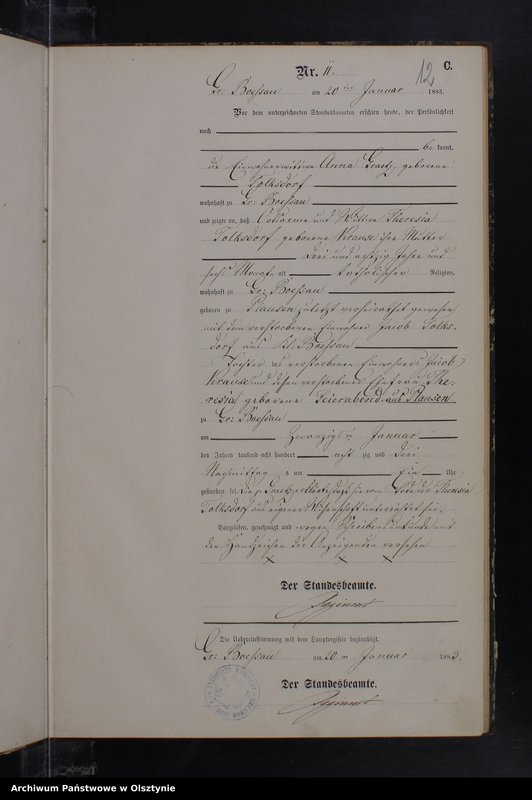 12
C.
Nr. 11.
Gr: Boessau am 20 ten Januar 1883.
Vor dem unterzeichneten Standesbeamten erschien heute, der Persönlichkeit
nach
be kannt,
die Einwohnerwittwe Anna Graetz, geborene
Tolksdorf
wohnhaft zu Gr: Boessau
und zeigte an, daß Ortsarme und Wittwe Theresia
Tolksdorf geborene Krause ihre Mutter
drei und achtzig Jahre und
sechs Monate alt katholischer Religion,
wohnhaft zu Gr: Boessau
geboren zu Plausen zuletzt verheirathet gewesen
mit dem verstorbenen Einwohner Jacob Tolks-
dorf aus Kl: Boessau
Tochter des verstorbenen Einwohners Jacob
Krause und dessen verstorbenen Ehefrau The-
resia geborene Feierabend aus Plausen
zu Gr: Boessau
am zwanzig ten Januar
des Jahrs tausend acht hundert acht zig und drei
Nachmittag s um Ein Uhr
gestorben sei, die p. Graetz erklärte daß sie vom Tode der Theresia
Tolksdorf aus eigener Wissenschaft unterrichtet sei.
Vorgelesen, genehmigt und wegen Schreibensunkunde mit
den Handzeichen der Anzeigenden versehen
X X X
Der Standesbeamte.
Die Uebereinstimmung mit dem Hauptregister beglaubigt.
Gr: Boessau am 20 ten Januar 1883.
Der Standesbeamte.
Archiwum Państwowe w Olsztynie